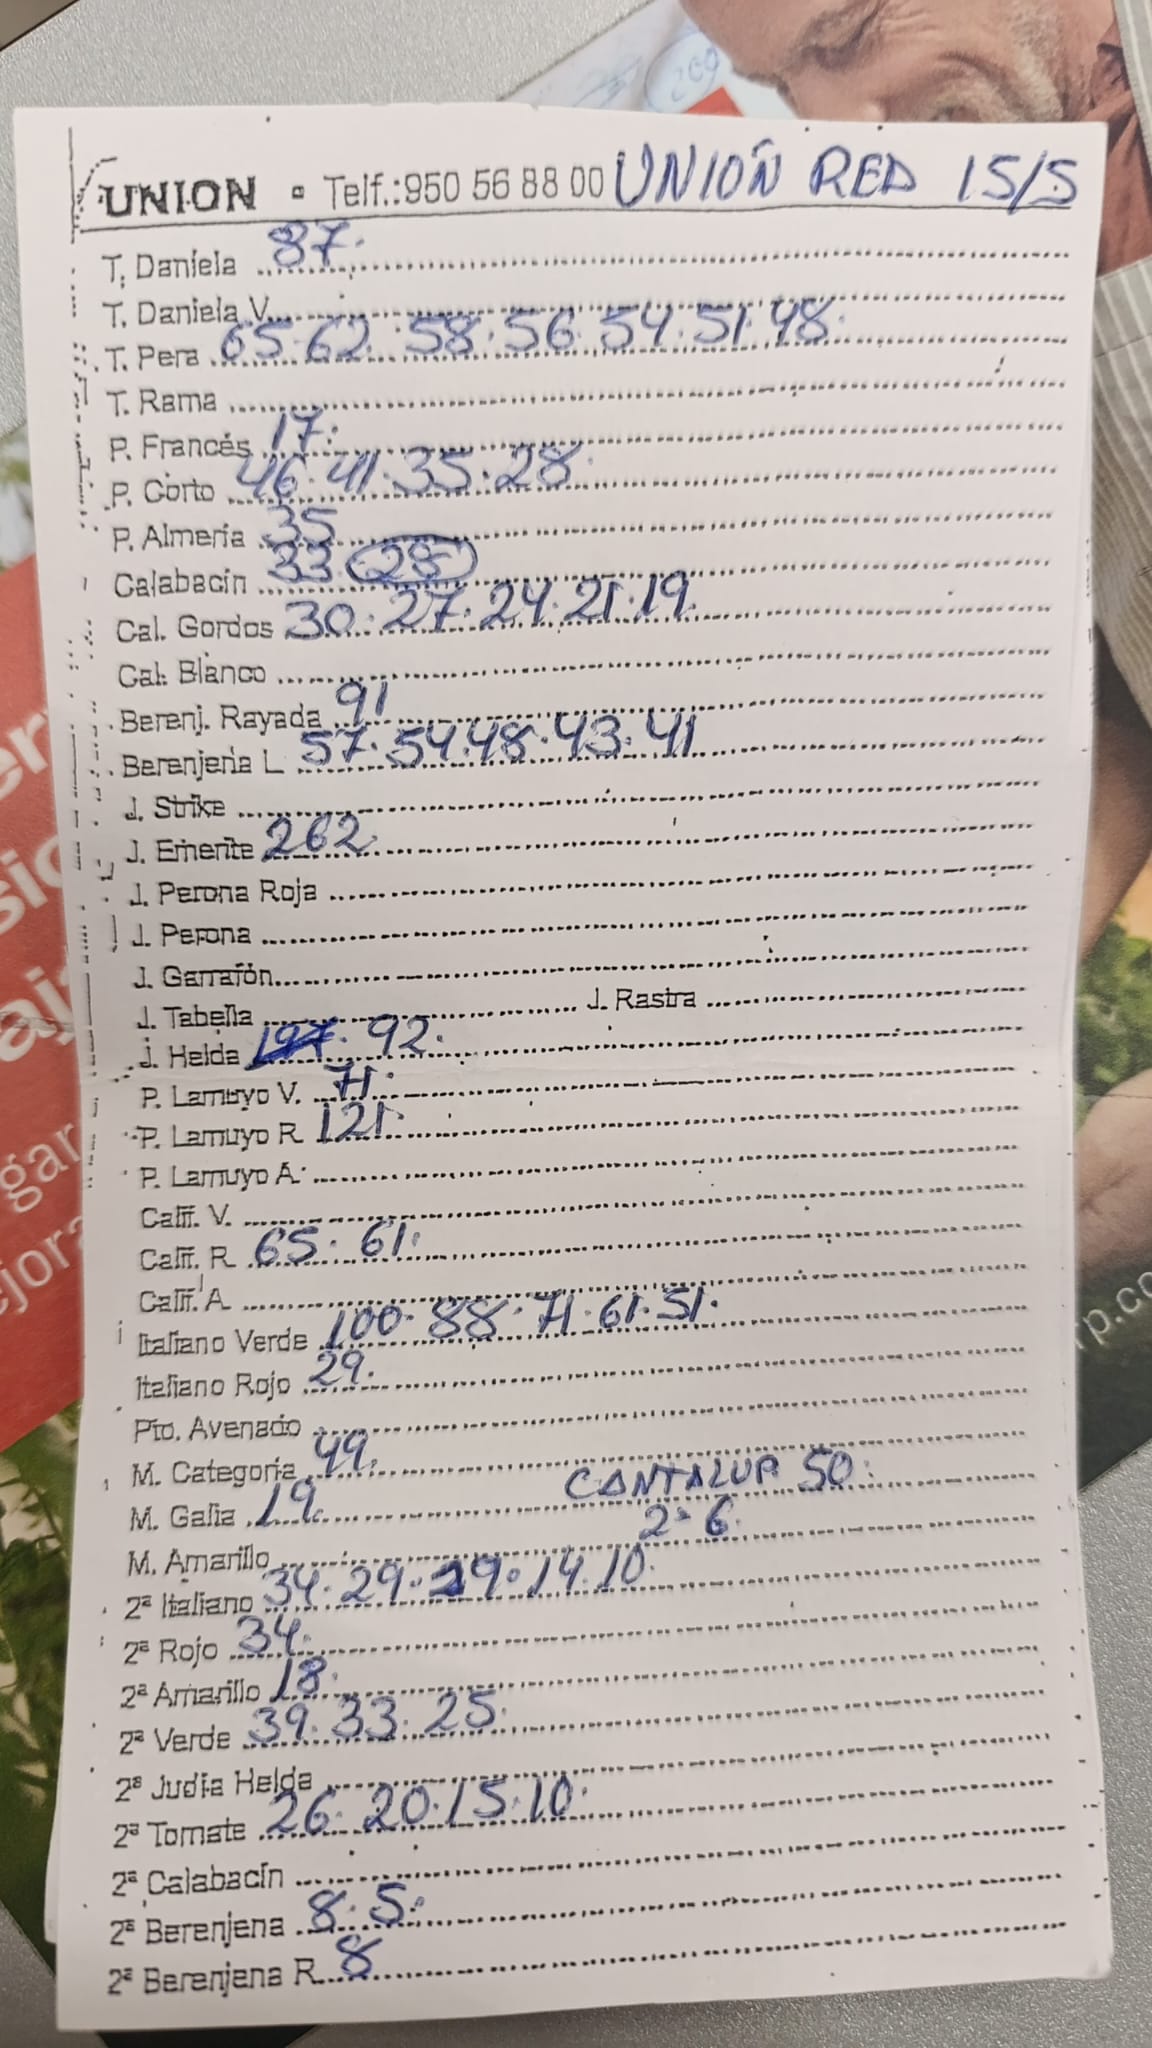 UNION ▫ Telf.:950 56 88 00 UNIÓN RED 15/5
T. Daniela 87.
T. Daniela V.
T. Pera 65.62.58.56.54.51.48.
T. Rama
P. Francés 17.
P. Corto 46.41.35.28.
P. Almería 35
Calabacín 33 28
Cal. Gordos 30.27.24.21.19.
Cal. Blanco
Berenj. Rayada 91
Berenjena L 57.54.48.43.41
J. Strike
J. Emerite 262.
J. Perona Roja
J. Perona
J. Garrafón
J. Tabella J. Rastra
J. Helda 92.
P. Lamuyo V. 71.
P. Lamuyo R 121.
P. Lamuyo A
Calif. V.
Calif. R 65.61.
Calif. A
Italiano Verde 100.88.71.61.51.
Italiano Rojo 29.
Pto. Avenado
M. Categoría 49.
CANTALUP 50.
M. Galia 19.
2ª 6.
M. Amarillo
2ª Italiano 34.29.19.14.10.
2ª Rojo 34.
2ª Amarillo 18.
2ª Verde 39.33.25.
2ª Judía Helda
2ª Tomate 26.20.15.10.
2ª Calabacín
2ª Berenjena 8.5.
2ª Berenjena R 8